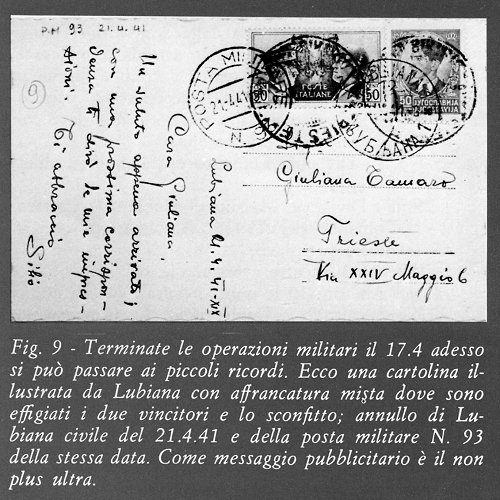 P.M 93 21.4.41
9
Lubiana 21.4.41-XIX
Cara Giuliana,
Un saluto appena arrivato;
con una prossima corrispon-
denza ti dirò le mie impres-
sioni. Ti abbraccio
N. POSTA MILI
21.4.41
50
POSTE
ITALIANE
50
50
JUGOSLAVIJA
ЉУБЉАНА 1
Giuliana Tamaro
Trieste
Via XXIV Maggio 6
Fig. 9 - Terminate le operazioni militari il 17.4 adesso
si può passare ai piccoli ricordi. Ecco una cartolina il-
lustrata da Lubiana con affrancatura mista dove sono
effigiati i due vincitori e lo sconfitto; annullo di Lu-
biana civile del 21.4.41 e della posta militare N. 93
della stessa data. Come messaggio pubblicitario è il non
plus ultra.